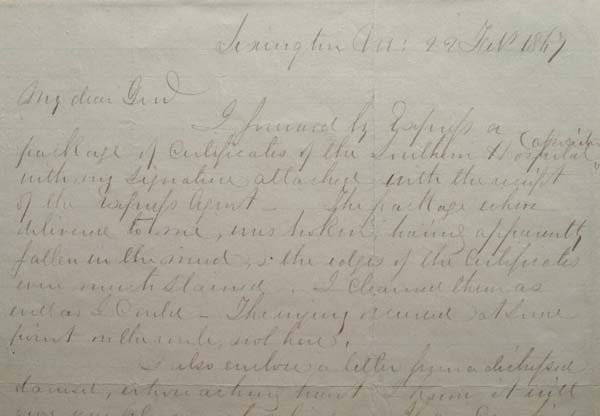 Lexington Va: 22 Feb 1867
My dear Genl
I forward by Express a
package of Certificates of the Southern Hospital
with my signature attached with the receipt
of the Express Agent — The package when
delivered to me, was broken, having apparently
fallen in the mud, & the edges of the Certificates
were much stained. I cleaned them as
well as I could — The injury occurred at some
point on the route, not here.
I also enclose a letter from a distressed
damsel, whose aching heart I know it will